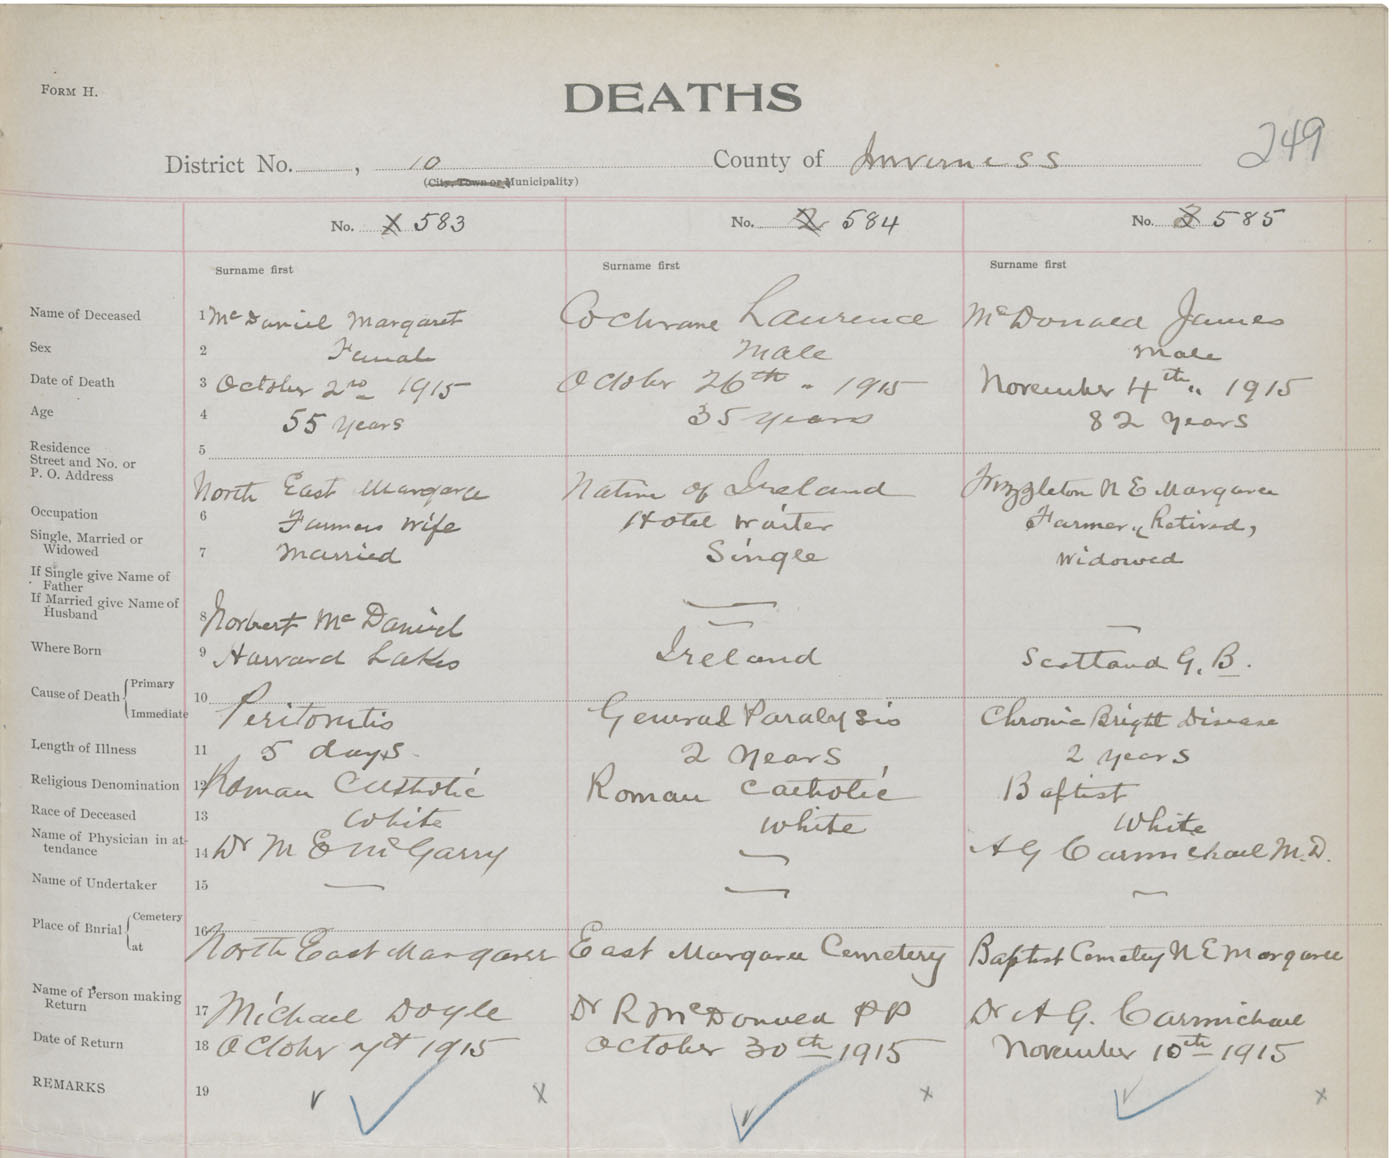 FORM H.
DEATHS
249
District No. , 10 County of Inverness
(City, Town or Municipality)
No. 1 583 No. 2 584 No. 3 585
Surname first Surname first Surname first
Name of Deceased 1 McDaniel Margaret Cochrane Laurence McDonald James
Sex 2 Female Male Male
Date of Death 3 October 2nd 1915 October 26th " 1915 November 4th " 1915
Age 4 55 years 35 years 82 years
Residence 5
Street and No. or
P. O. Address North East Margaree Native of Ireland Frizzleton N E Margaree
Occupation 6 Farmers Wife Hotel Waiter Farmer, Retired,
Single, Married or
Widowed 7 Married Single Widowed
If Single give Name of
Father
If Married give Name of
Husband 8 Norbert McDaniel
Where Born 9 Harvard Lakes Ireland Scotland G. B.
Cause of Death Primary 10
Immediate Peritonitis General Paralysis Chronic Bright Disease
Length of Illness 11 5 days. 2 Years 2 years
Religious Denomination 12 Roman Catholic Roman Catholic Baptist
Race of Deceased 13 White White White
Name of Physician in at-
tendance 14 Dr M E McGarry A G Carmichael M.D.
Name of Undertaker 15
Place of Burial Cemetery 16
at North East Margaree East Margaree Cemetery Baptist Cemetey N E Margaree
Name of Person making
Return 17 Michael Doyle Dr R McDonald P P Dr A G. Carmichael
Date of Return 18 October 7th 1915 October 30th 1915 November 10th 1915
REMARKS 19 x x x